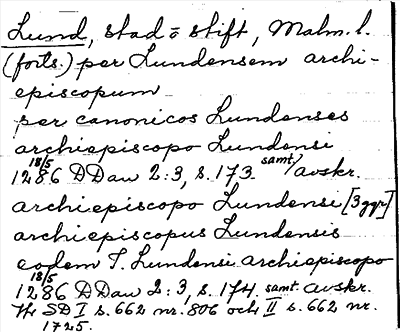 Lund, stad o stift, Malm. l.
(forts.) per Lundensem archi-
episcopum
per canonicos Lundenses
archiepiscopo Lundensi
18/5 1286 DDan 2:3, s. 173 samt. avskr.
archiepiscopo Lundensi [3 ggr]
archiepiscopus Lundensis
eodem J. Lundensi archiepiscopo
18/5 1286 DDan 2:3, s. 174. samt. avskr.
Tr SD I s. 662 nr. 806 och II s. 662 nr.
1725.